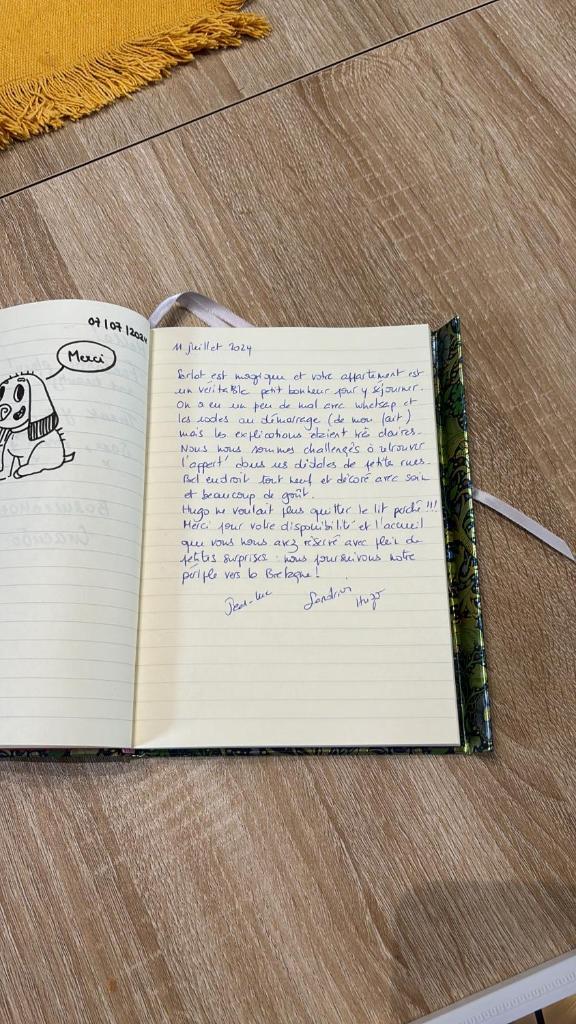 07/07/2024
Merci
11 juillet 2024
Sarlat est magique et votre appartement est
un véritable petit bonheur pour y séjourner.
On a eu un peu de mal avec whatsap et
les codes au démarrage (de mon fait)
mais les explications étaient très claires.
Nous nous sommes challengés à retrouver
l'appart' dans ces dédales de petites rues.
Bel endroit tout neuf et décoré avec soin
et beaucoup de goût.
Hugo ne voulait plus quitter le lit perché !!!
Merci pour votre disponibilité et l'accueil
que vous nous avez réservé avec plein de
petites surprises : nous poursuivons notre
périple vers la Bretagne !
Jean-Luc Sandrine Hugo